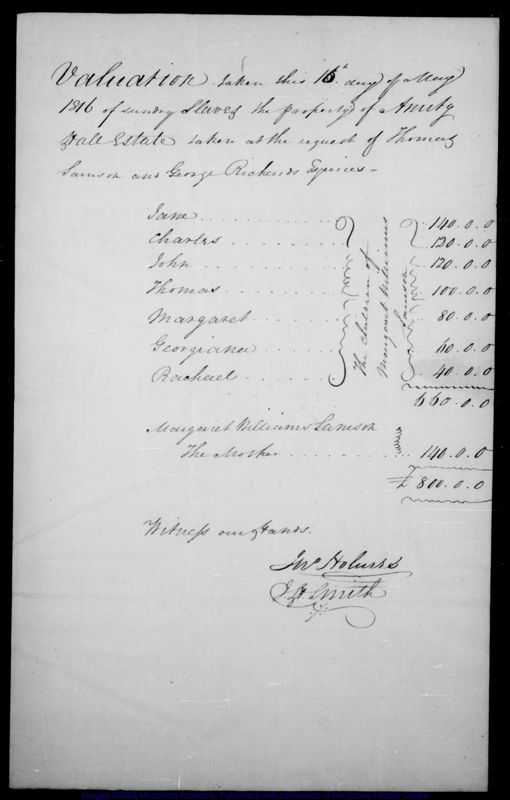 Valuation taken this 16th day of May
1816 of sundry Slaves the property of Amity
Hall Estate taken at the request of Thomas
Samson and George Richards Esquires –
Jane . . . . . . . . . . 140.0.0
Charles . . . . . . . . 120.0.0
John . . . . . . . . . . 120.0.0
Thomas . . . . . . . . 100.0.0
Margaret . . . . . . . 80.0.0
Georgiana . . . . . . 60.0.0
Rachael . . . . . . . . 40.0.0
The Children of
Margaret Williams
Samson
660.0.0
Margaret Williams Samson
The Mother . . . . . . . . . 140.0.0
£ 800.0.0
Witness our Hands.
Jno Holmes
J. H. Smith